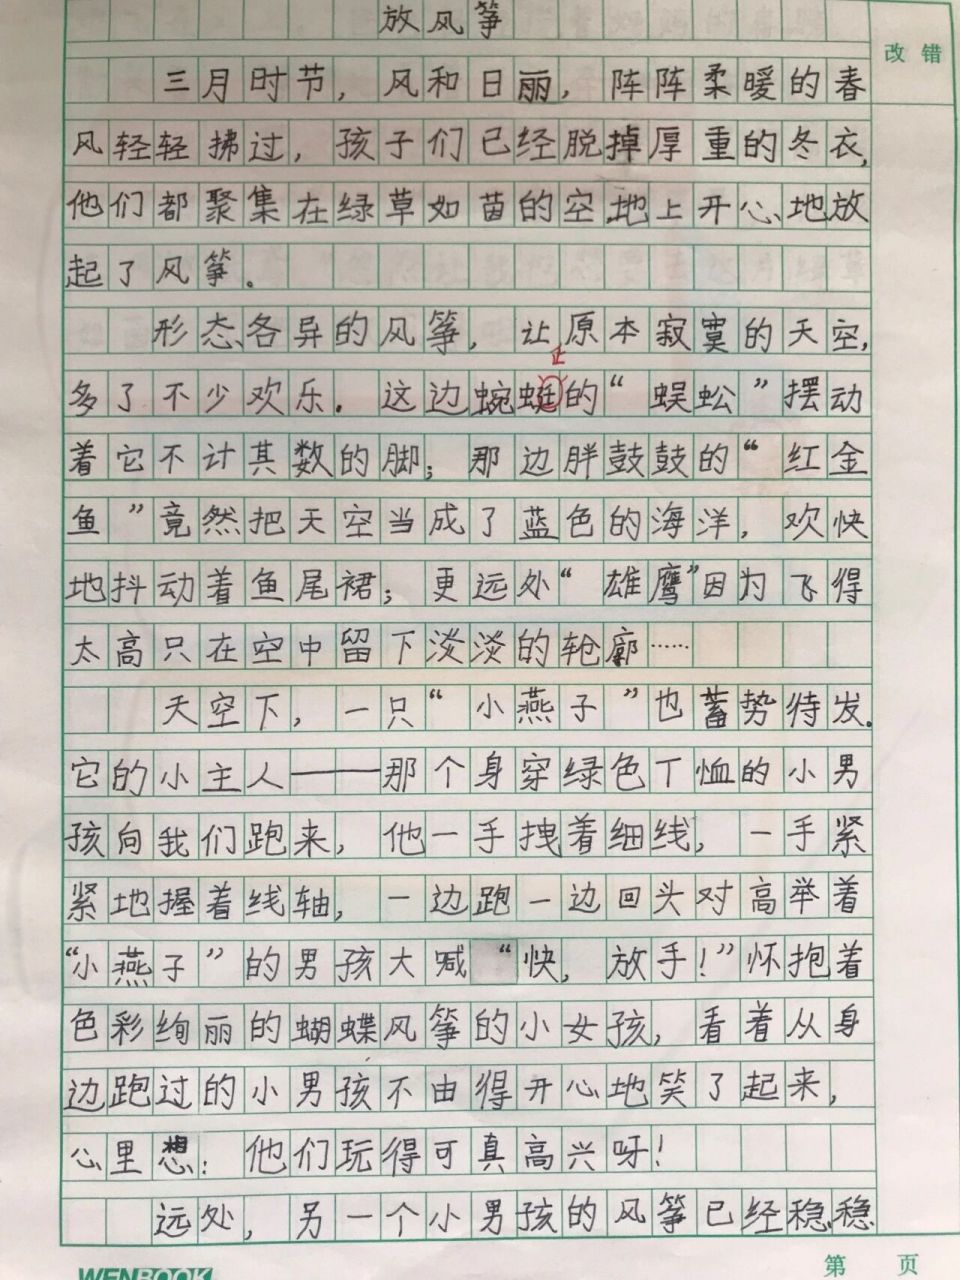 放风筝
改错
三月时节，风和日丽，阵阵柔暖的春
风轻轻拂过，孩子们已经脱掉厚重的冬衣，
他们都聚集在绿草如茵的空地上开心地放
起了风筝。
形态各异的风筝，让原本寂寞的天空，
多了不少欢乐。这边蜿蜓的“蜈蚣”摆动
着它不计其数的脚；那边胖鼓鼓的“红金
鱼”竟然把天空当成了蓝色的海洋，欢快
地抖动着鱼尾裙；更远处“雄鹰”因为飞得
太高只在空中留下淡淡的轮廓……
天空下，一只“小燕子”也蓄势待发。
它的小主人——那个身穿绿色T恤的小男
孩向我们跑来，他一手拽着细线，一手紧
紧地握着线轴，一边跑一边回头对高举着
“小燕子”的男孩大喊“快，放手！”怀抱着
色彩绚丽的蝴蝶风筝的小女孩，看着从身
边跑过的小男孩不由得开心地笑了起来，
心里想：他们玩得可真高兴呀！
远处，另一个小男孩的风筝已经稳稳
WENBOOK
第 页